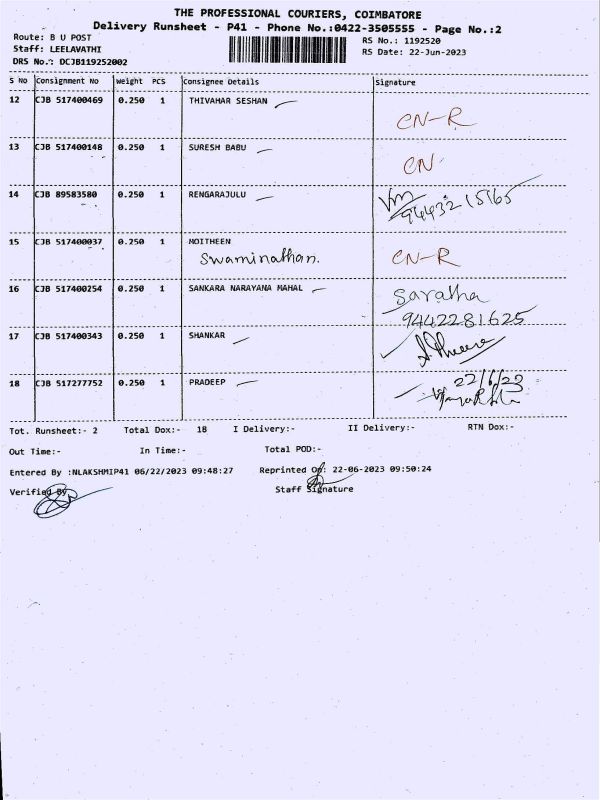 THE PROFESSIONAL COURIERS, COIMBATORE
Delivery Runsheet - P41 - Phone No.:0422-3505555 - Page No.:2
Route: B U POST
RS No.: 1192520
Staff: LEELAVATHI
RS Date: 22-Jun-2023
DRS No.: DCJB119252002
S No Consignment No Weight PCS Consignee Details Signature
12 CJB 517400469 0.250 1 THIVAHAR SESHAN
CN-R
13 CJB 517400148 0.250 1 SURESH BABU
CN
14 CJB 89583580 0.250 1 RENGARAJULU
9443215165
15 CJB 517400037 0.250 1 MOITHEEN
Swaminathan. CN-R
16 CJB 517400254 0.250 1 SANKARA NARAYANA MAHAL
Saratha
9442281625
17 CJB 517400343 0.250 1 SHANKAR
18 CJB 517277752 0.250 1 PRADEEP
22/6/23
Tot. Runsheet:- 2 Total Dox:- 18 I Delivery:- II Delivery:- RTN Dox:-
Out Time:- In Time:- Total POD:-
Entered By :NLAKSHMIP41 06/22/2023 09:48:27 Reprinted On: 22-06-2023 09:50:24
Verified By Staff Signature